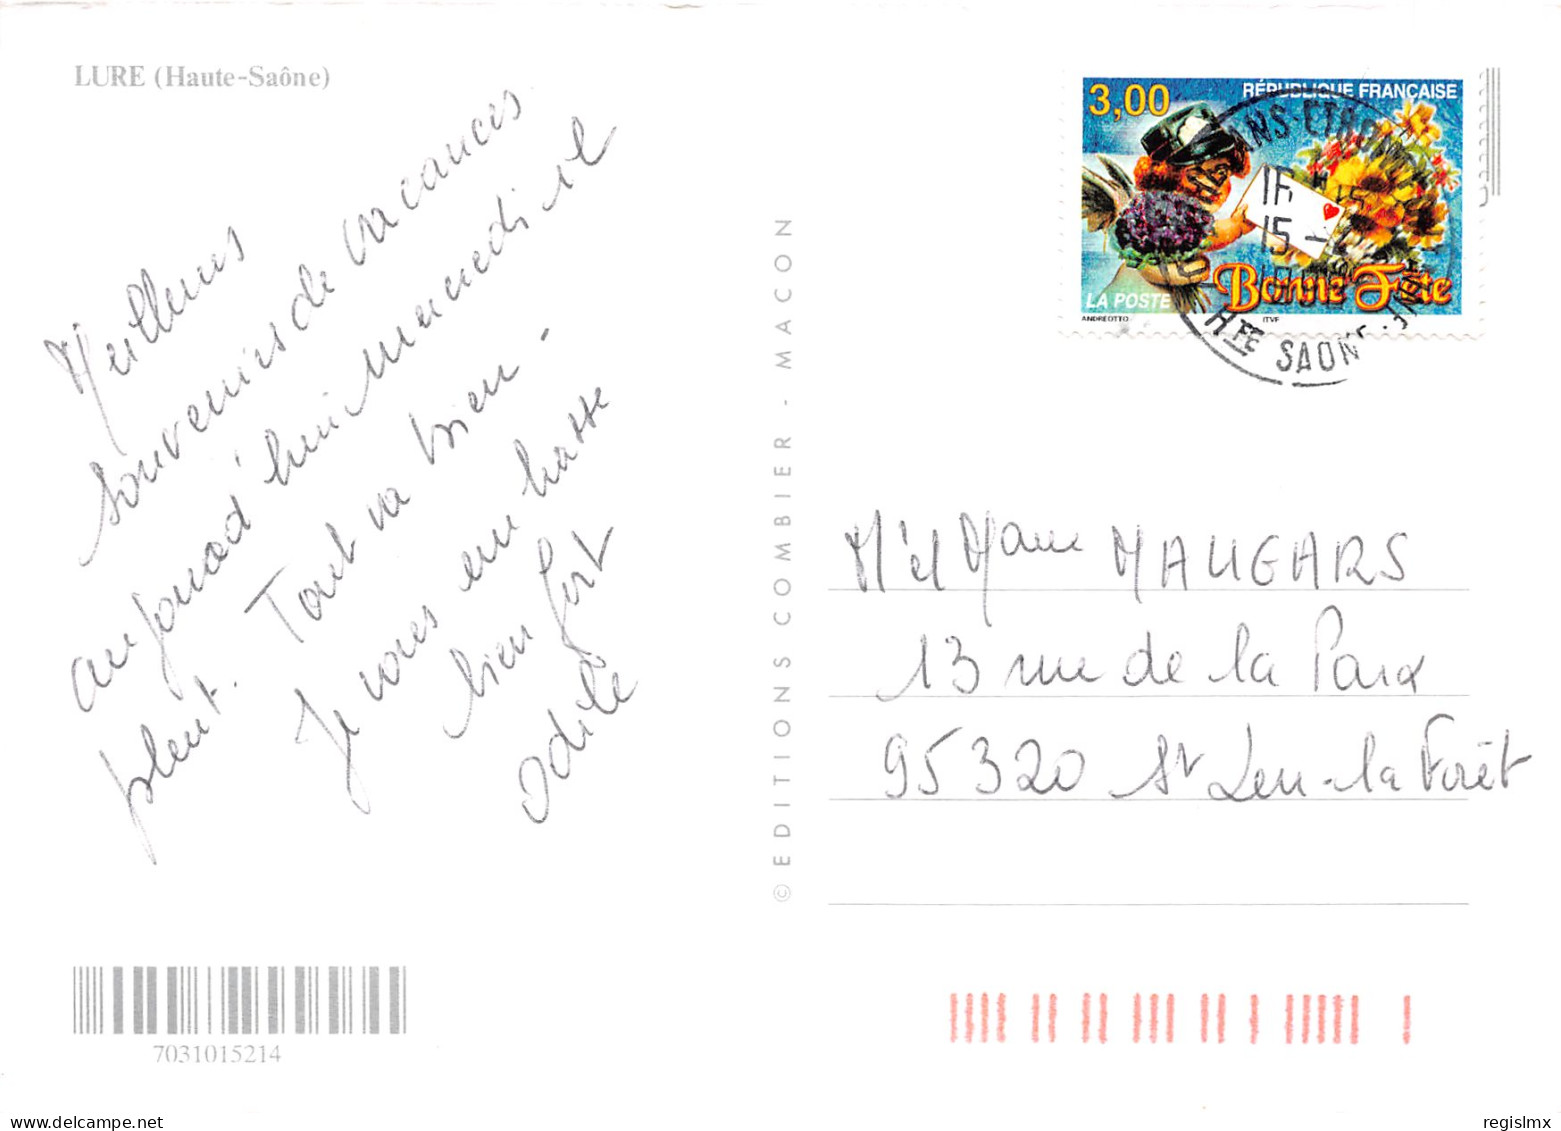 LURE (Haute-Saône)
Meilleurs
souvenirs de vacances
aujourd'hui il
pleut. Tout va bien -
Je vous en
bien fort
Odile
© EDITIONS COMBIER - MACON
3,00
RÉPUBLIQUE FRANÇAISE
LA POSTE
Bonne Fête
ANDREOTTO
ITVF
15
HTE SAONE
M et Mme MAUGARS
13 rue de la Paix
95320 St Leu-la Forêt
7031015214
regislmx